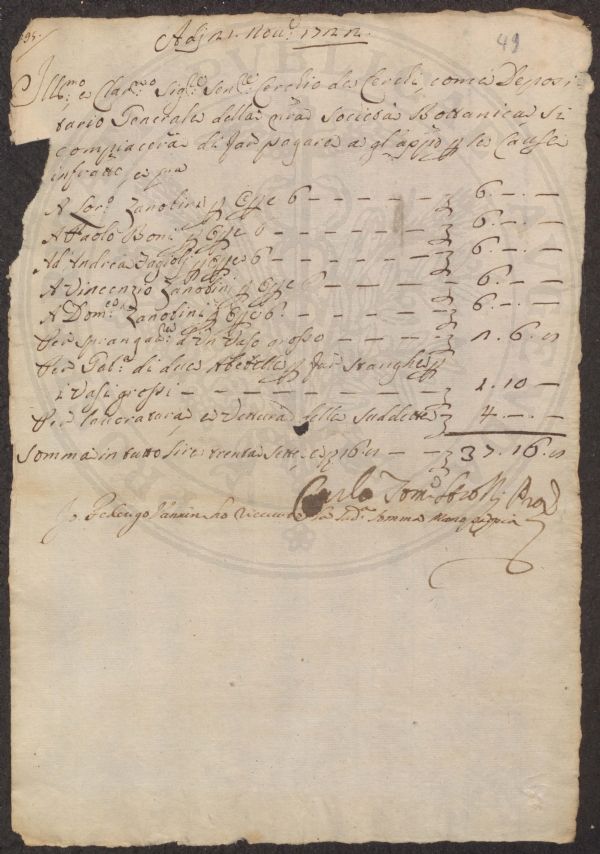 95.
49
Adj 21. Nov.e 1722.
Ill.mo e Clar.mo Sig.re Sen.re Cerchio de Cerchi, come Deposi
tario Generale della nra Società Bottanica si
compiacerà di far pagare a gl'app.o p le Cause
infratte, e pa
A Lor.o Zanobini p Opje 6 — — — — 6. —. —
A Paolo Boni p Opje 6 — — — — 6. —. —
Ad Andrea Fagioli p Opje 6 — — — — 6. —. —
A Vincenzio Zanobini p Opje 6 — — — — 6. —. —
A Dom.co Zanobini p Opje 6. — — — — 6. —. —
Per sprangat.e d'un Vaso grosso — — — 1. 6.
Per Gab.a di due Abetelle p far Stanghe p
i Vasi grossi — — — — — — 2. 10 —
Per lavoratura, e Vettura delle suddette 4. —. —
Somma in tutto lire trenta sette, e 16 — — 37. 16.
Carlo Tom.o Strozzi
Io ho ricevuto la sud.a somma mano propria